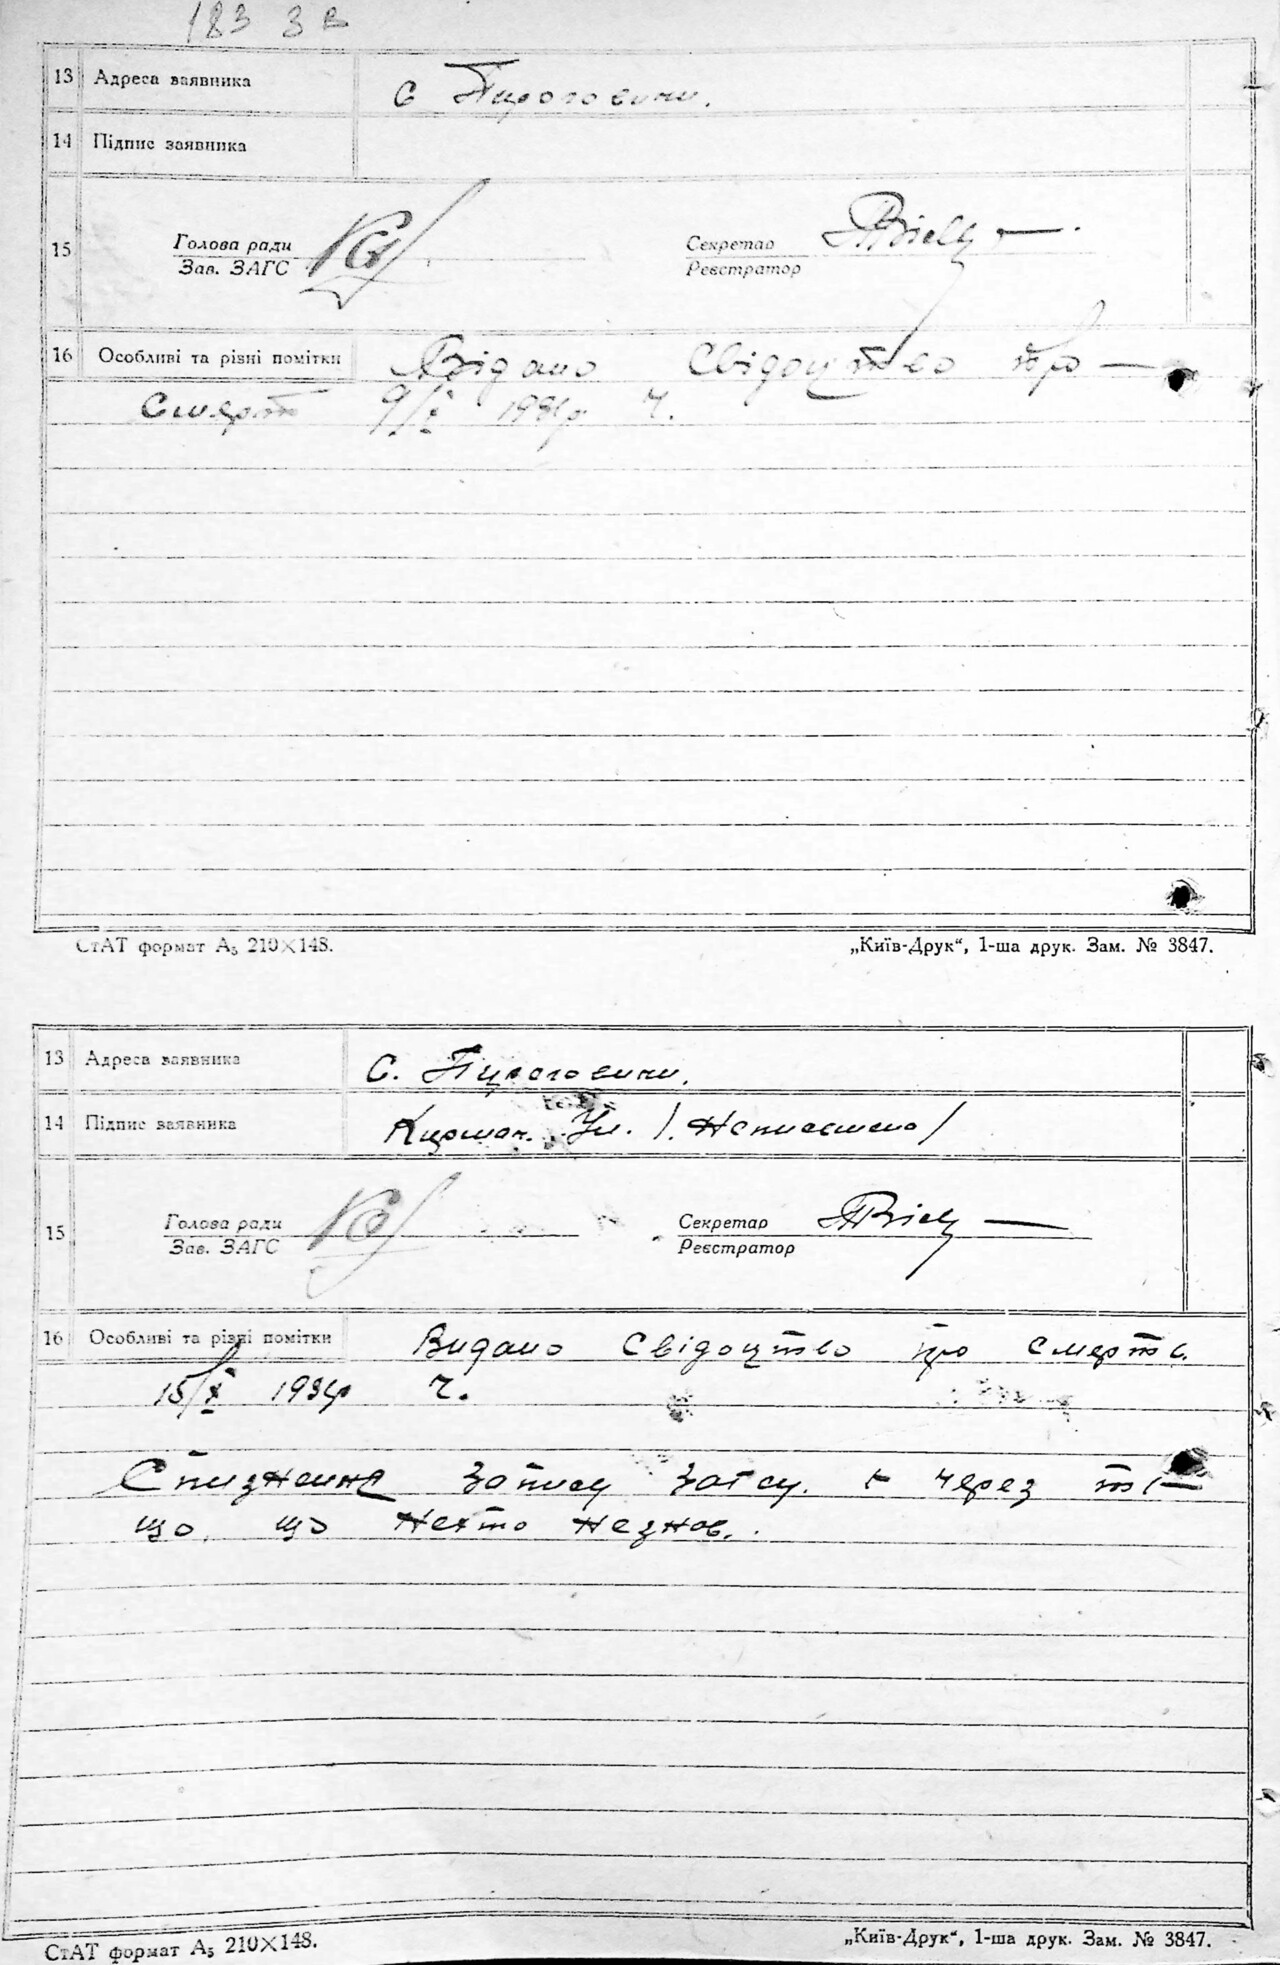 183 зв
13 Адреса заявника с Пироговичи.
14 Підпис заявника
15 Голова ради Секретар
Зав. ЗАГС Реєстратор
16 Особливі та різні помітки Видано Свідоцтво про —
Смерть 9/X 1931р ч.
СтАТ формат А₅ 210×148. „Київ-Друк“, 1-ша друк. Зам. № 3847.
13 Адреса заявника С. Пироговичи.
14 Підпис заявника /. Неписьмена/
15 Голова ради Секретар
Зав. ЗАГС Реєстратор
16 Особливі та різні помітки Видано Свідоцтво про смерть.
15/X 1931р ч.
Спизнення запису Загсу. через те
що, що нехто незнов.
СтАТ формат А₅ 210×148. „Київ-Друк“, 1-ша друк. Зам. № 3847.